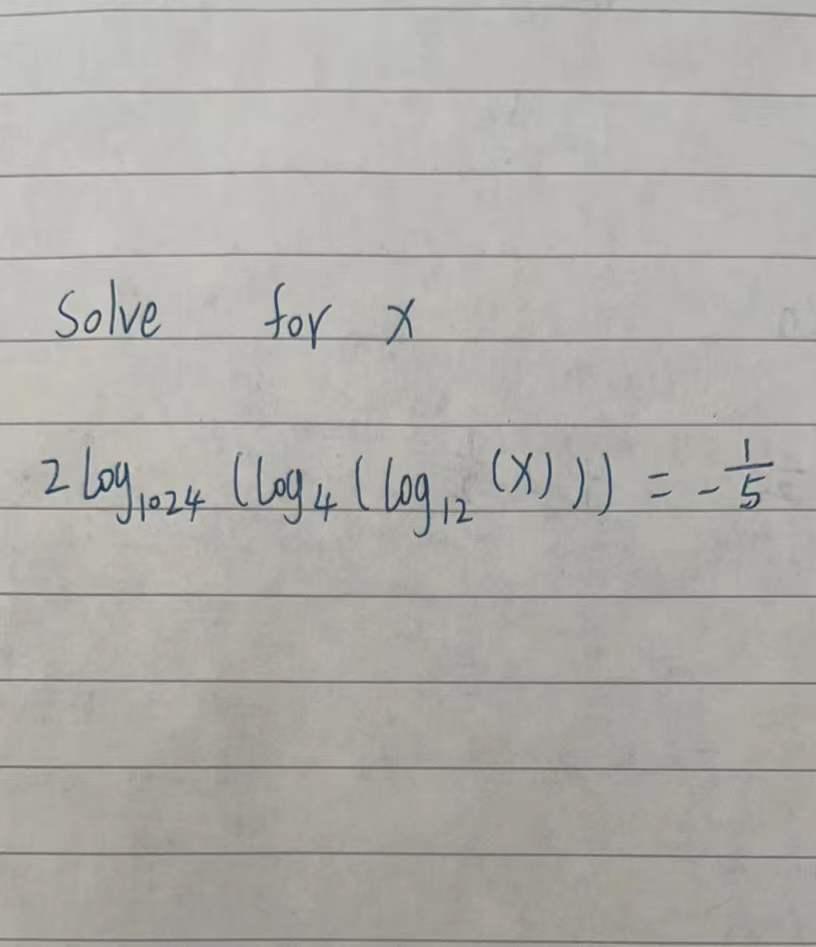 Solve for x
2 log₁₀₂₄ (log₄ (log₁₂ (x))) = -1/5